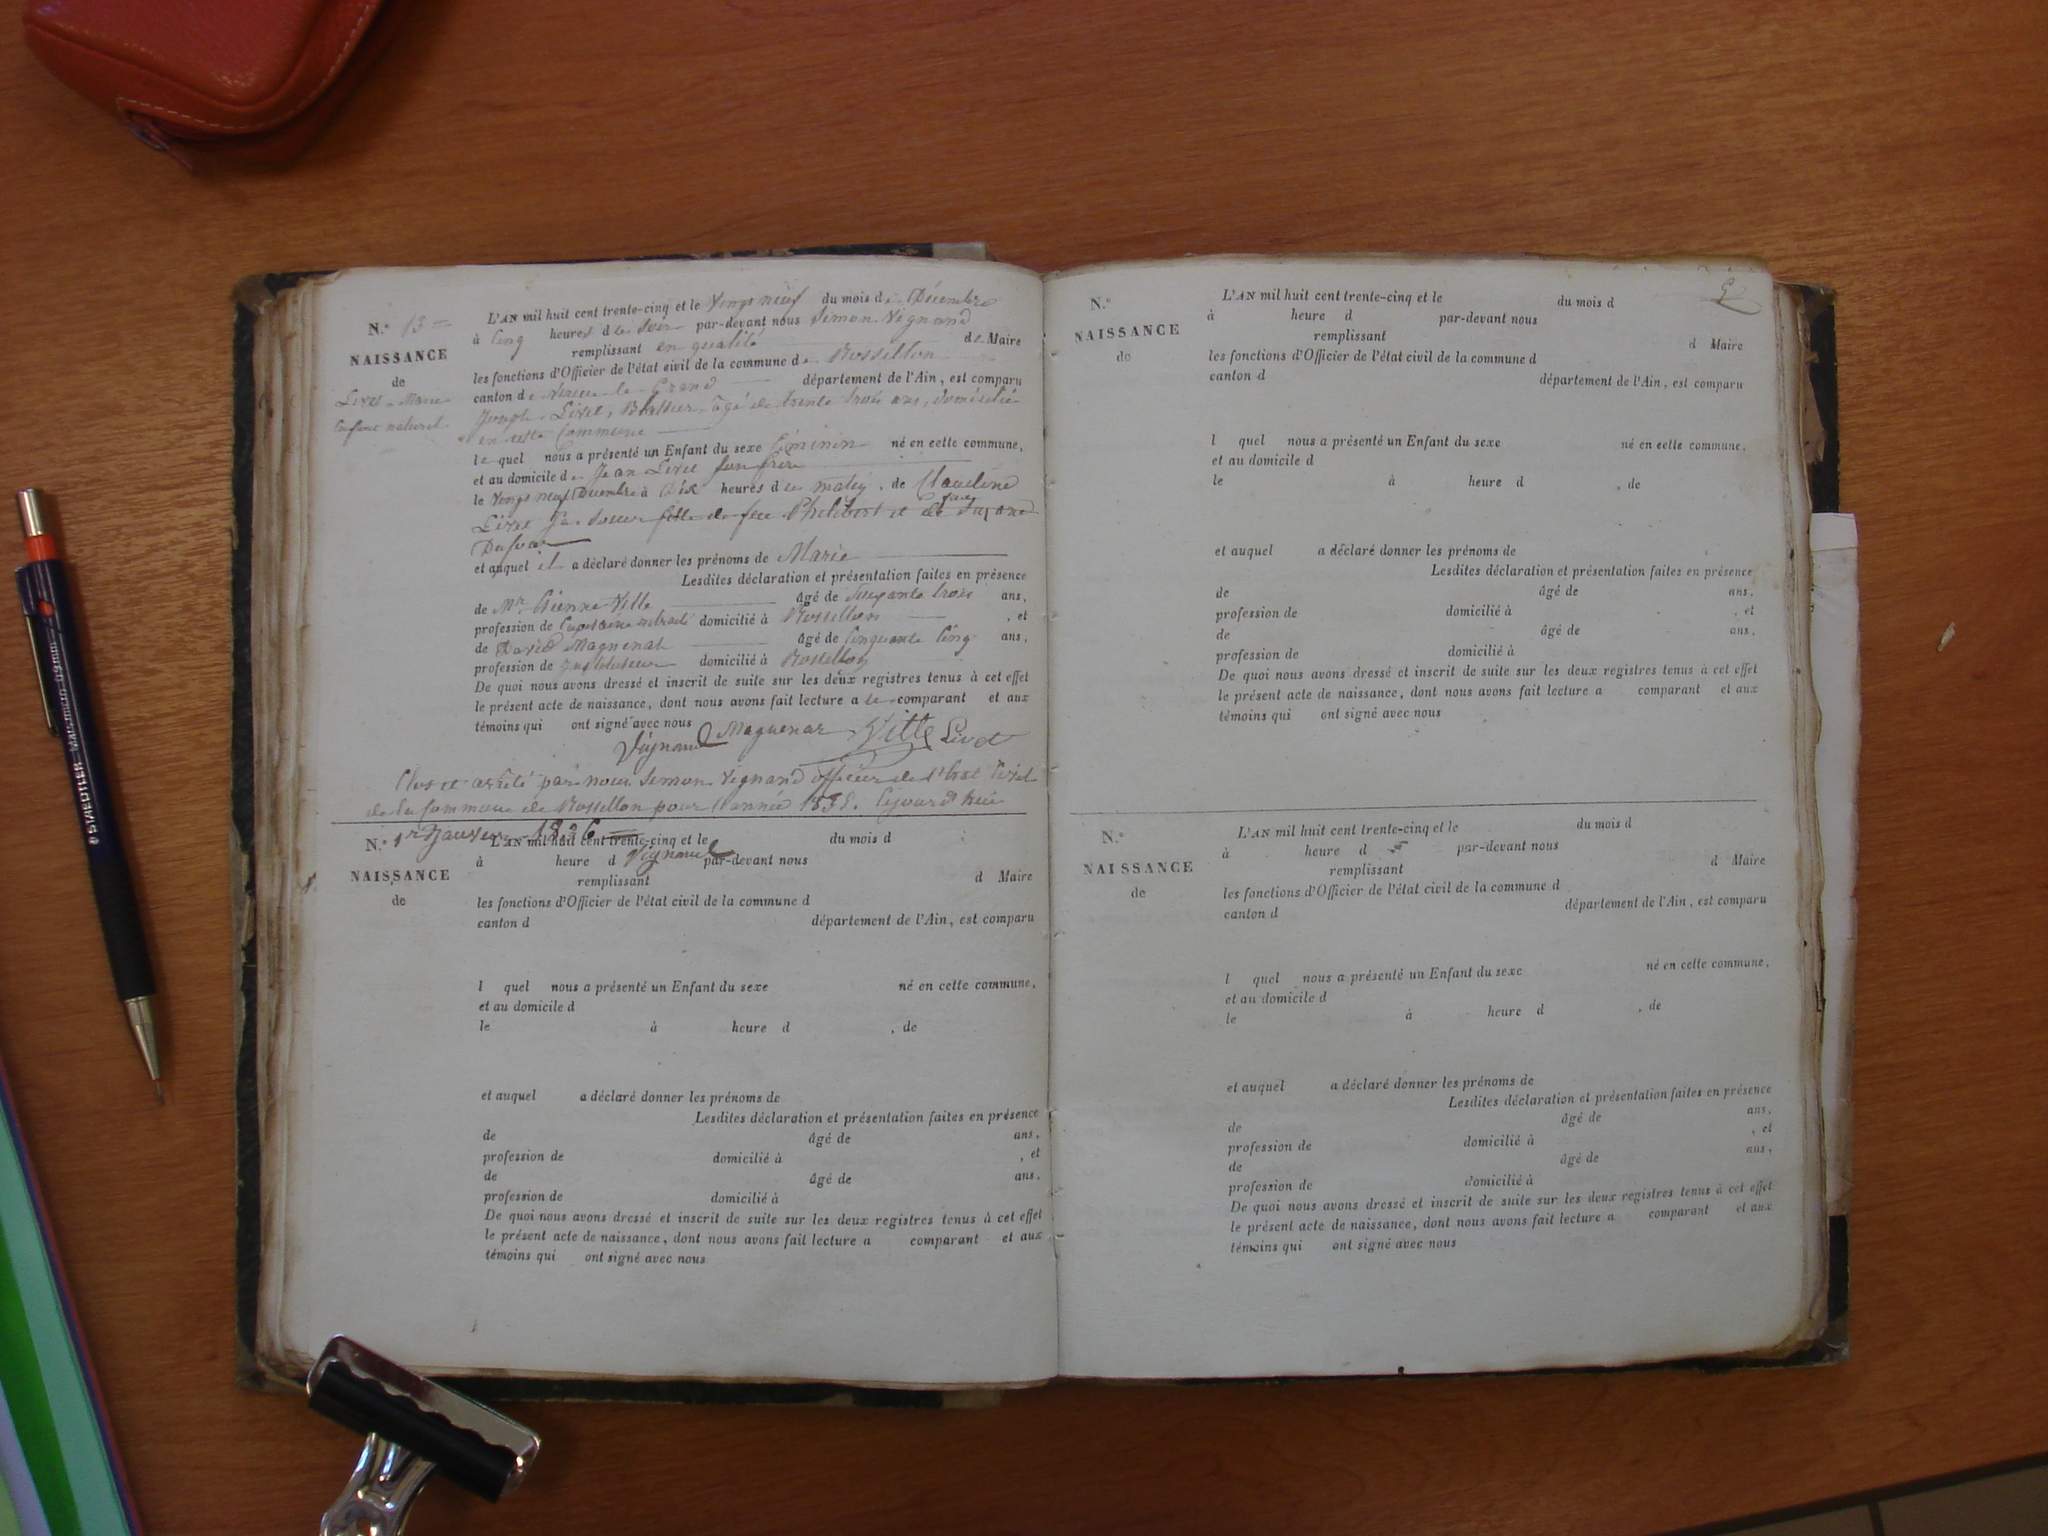 N.º 13
NAISSANCE
de
Livet Marie
Enfant naturel
L'AN mil huit cent trente-cinq et le Vengt neuf du mois de Décembre
à Cinq heures du Soir par-devant nous Simon Vignand
remplissant en qualité de Maire
les fonctions d'Officier de l'état civil de la commune de Rossillon
canton de Virieu le Grand département de l'Ain, est comparu
Joseph Livet, âgé de trente trois ans, domicilié
en cette Commune
le quel nous a présenté un Enfant du sexe féminin né en cette commune,
et au domicile de Jean Livet son frère
le Vengt neuf Décembre à dix heures du matin, de Claudine
Livet Sa Soeur fille de feu Philibert et de Suzane
et auquel il a déclaré donner les prénoms de Marie
Lesdites déclaration et présentation faites en présence
de Mr Etienne Ville âgé de Soixante trois ans,
profession de Capitaine retraité domicilié à Rossillon, et
de David Magnenat âgé de Cinquante Cinq ans,
profession de Instituteur domicilié à Rossillon
De quoi nous avons dressé et inscrit de suite sur les deux registres tenus à cet effet
le présent acte de naissance, dont nous avons fait lecture a le comparant et aux
témoins qui ont signé avec nous
Vignand Magnenat Ville Livet
Clos et arrêté par nous Simon Vignand officier de l'état Civil
de la Commune de Rossillon pour l'année 1835. Cejourd'hui
1er Janvier 1836
Vignand
N.º
NAISSANCE
de
L'AN mil huit cent trente-cinq et le du mois d
à heure d par-devant nous
remplissant d Maire
les fonctions d'Officier de l'état civil de la commune d
canton d département de l'Ain, est comparu
l quel nous a présenté un Enfant du sexe né en cette commune,
et au domicile d
le à heure d , de
et auquel a déclaré donner les prénoms de
Lesdites déclaration et présentation faites en présence
de âgé de ans,
profession de domicilié à , et
de âgé de ans,
profession de domicilié à
De quoi nous avons dressé et inscrit de suite sur les deux registres tenus à cet effet
le présent acte de naissance, dont nous avons fait lecture a comparant et aux
témoins qui ont signé avec nous
N.º
NAISSANCE
de
L'AN mil huit cent trente-cinq et le du mois d
à heure d par-devant nous
remplissant d Maire
les fonctions d'Officier de l'état civil de la commune d
canton d département de l'Ain, est comparu
l quel nous a présenté un Enfant du sexe né en cette commune,
et au domicile d
le à heure d , de
et auquel a déclaré donner les prénoms de
Lesdites déclaration et présentation faites en présence
de âgé de ans,
profession de domicilié à , et
de âgé de ans,
profession de domicilié à
De quoi nous avons dressé et inscrit de suite sur les deux registres tenus à cet effet
le présent acte de naissance, dont nous avons fait lecture a comparant et aux
témoins qui ont signé avec nous
N.º
NAISSANCE
de
L'AN mil huit cent trente-cinq et le du mois d
à heure d par-devant nous
remplissant d Maire
les fonctions d'Officier de l'état civil de la commune d
canton d département de l'Ain, est comparu
l quel nous a présenté un Enfant du sexe né en cette commune,
et au domicile d
le à heure d , de
et auquel a déclaré donner les prénoms de
Lesdites déclaration et présentation faites en présence
de âgé de ans,
profession de domicilié à , et
de âgé de ans,
profession de domicilié à
De quoi nous avons dressé et inscrit de suite sur les deux registres tenus à cet effet
le présent acte de naissance, dont nous avons fait lecture a comparant et aux
témoins qui ont signé avec nous
STAEDTLER